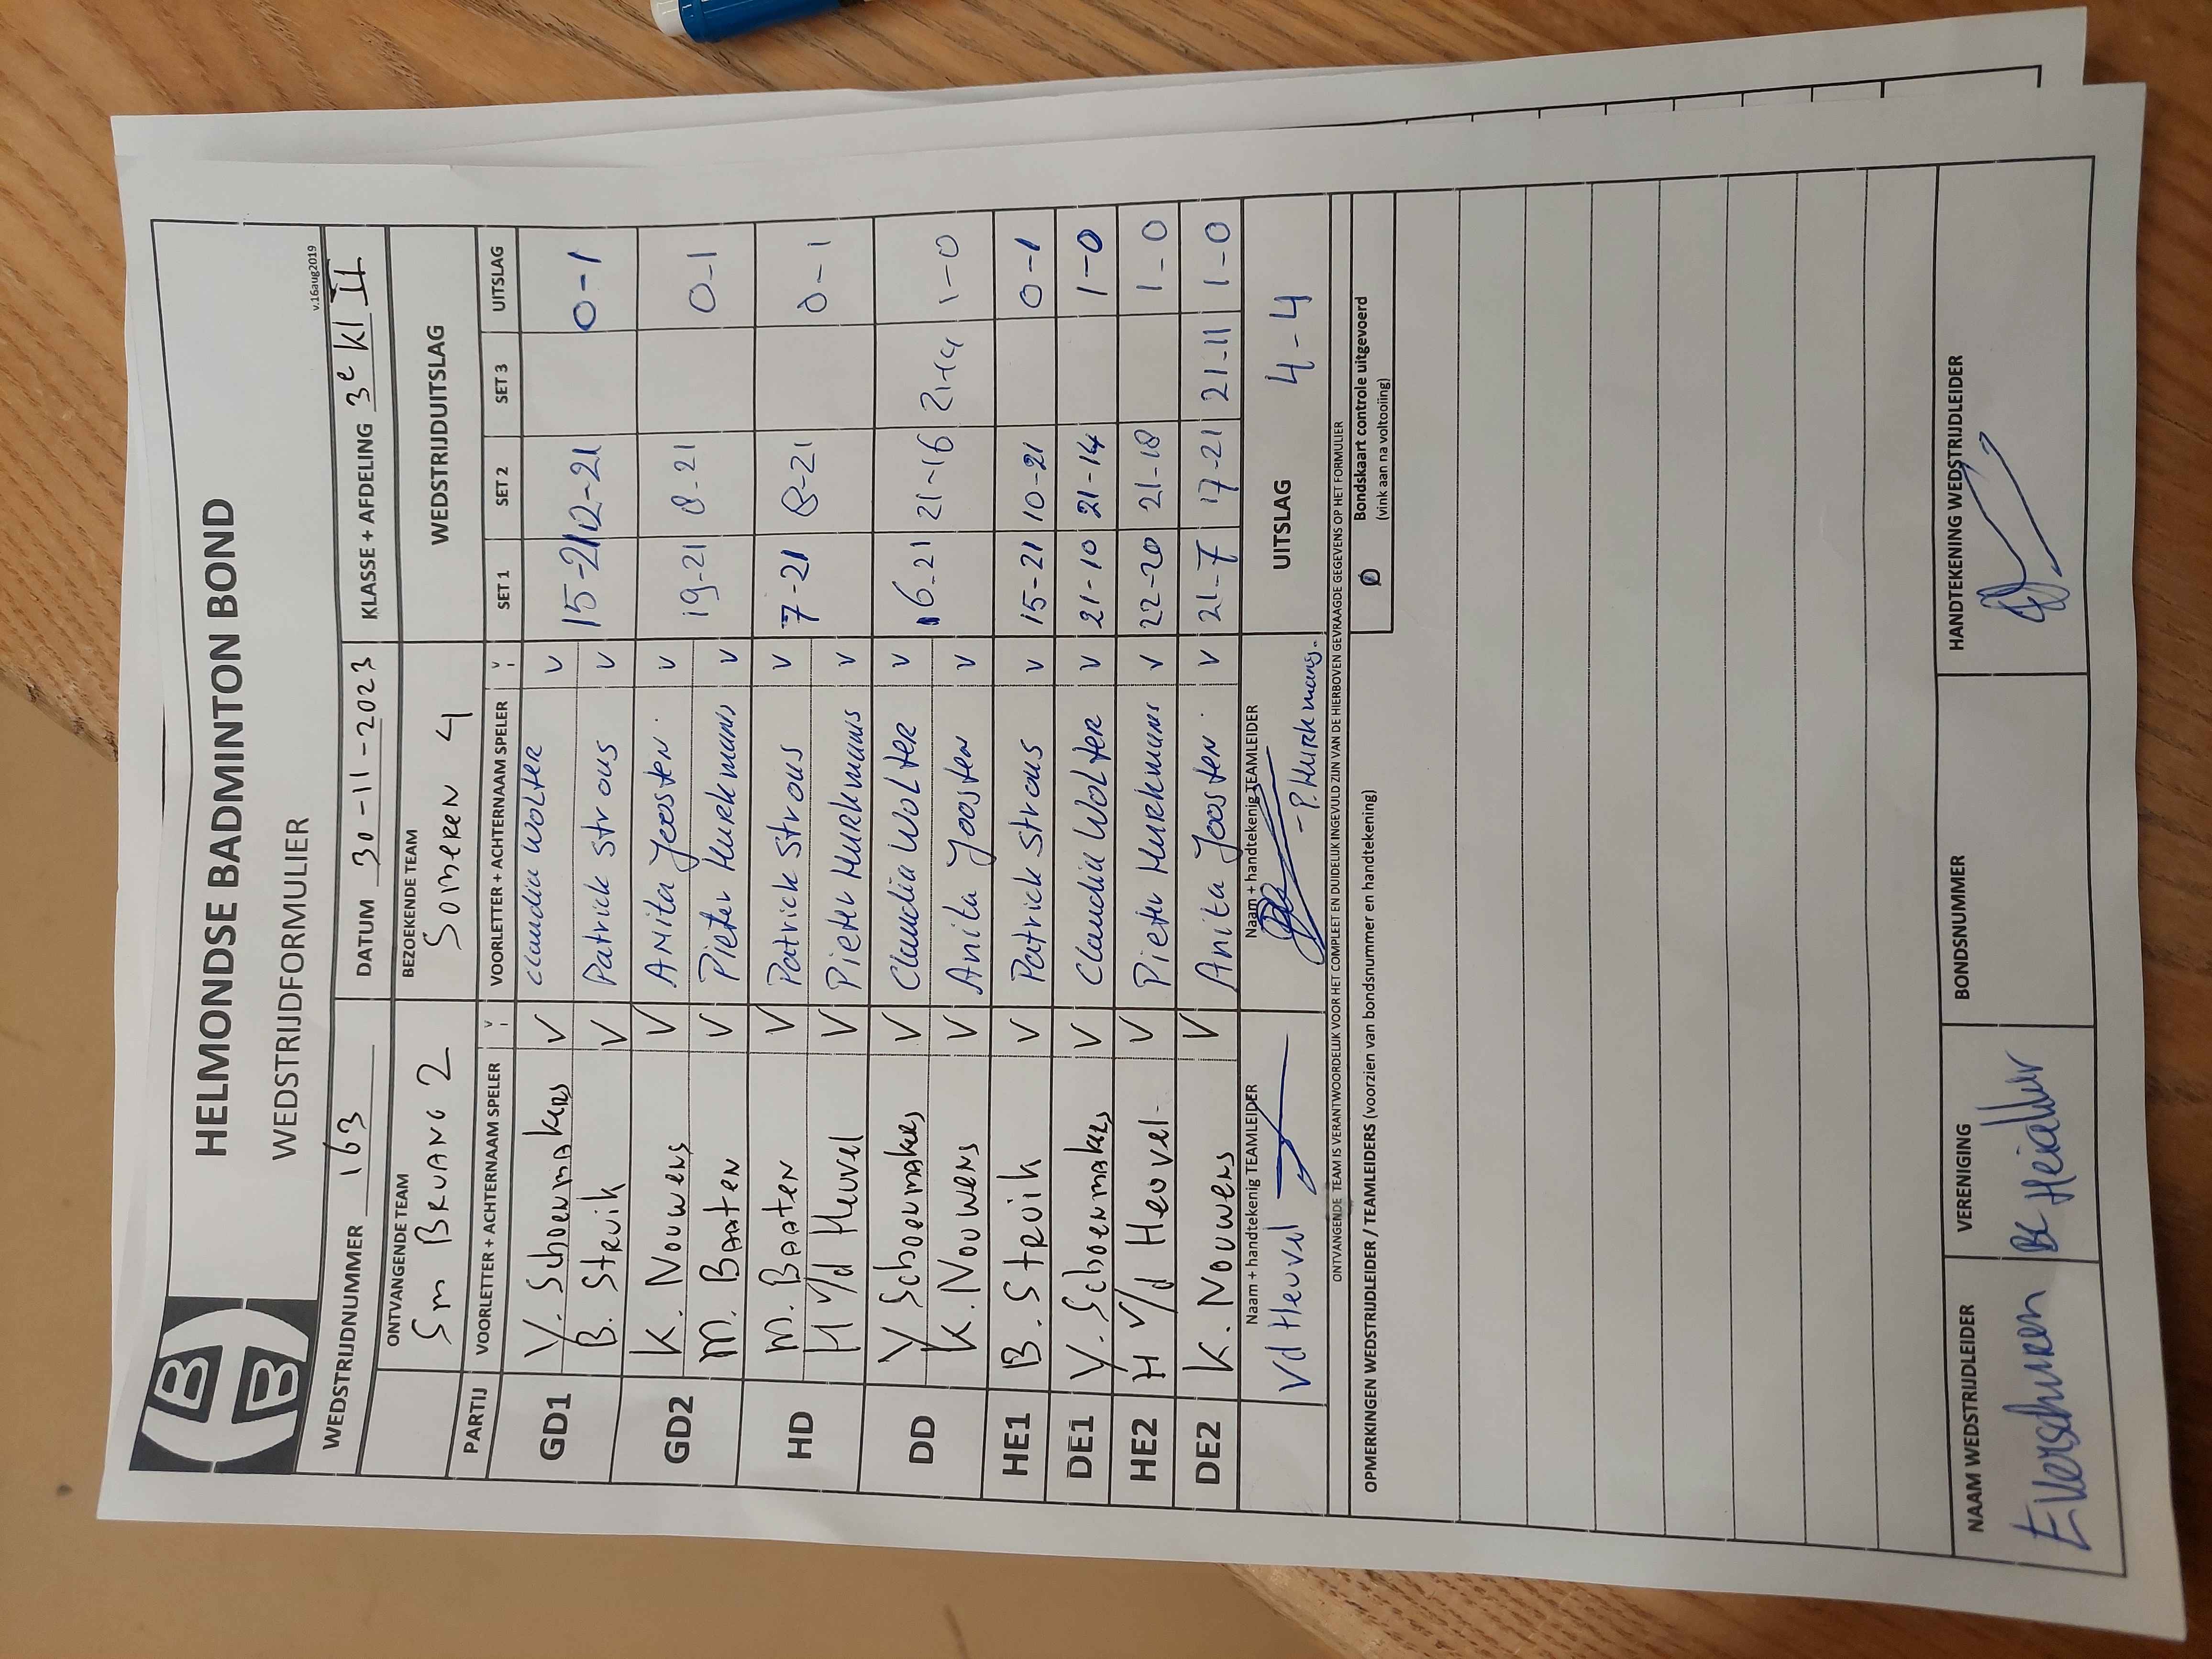 HELMONDSE BADMINTON BOND
WEDSTRIJDFORMULIER
v.16aug2019
WEDSTRIJDNUMMER 163 DATUM 30-11-2023 KLASSE + AFDELING 3e kl II
ONTVANGENDE TEAM BEZOEKENDE TEAM WEDSTRIJDUITSLAG
Sm BRUANG 2 Someren 4
PARTIJ VOORLETTER + ACHTERNAAM SPELER V VOORLETTER + ACHTERNAAM SPELER V SET 1 SET 2 SET 3 UITSLAG
GD1 Y. Schoenmakers V Claudia Wolter V 15-21 12-21 0-1
B. Struik V Patrick Strous V
GD2 K. Nouwens V Anita Joosten. V 19-21 8-21 0-1
M. Baaten V Pieter Hurkmans V
HD M. Baaten V Patrick Strous V 7-21 8-21 0-1
H v/d Heuvel V Pieter Hurkmans V
DD Y Schoenmakers V Claudia Wolter V 16-21 21-16 21-14 1-0
K. Nouwens V Anita Joosten V
HE1 B. Struik V Patrick Strous V 15-21 10-21 0-1
DE1 Y. Schoenmakers V Claudia Wolter V 21-10 21-14 1-0
HE2 H v/d Heuvel- V Pieter Hurkmans V 22-20 21-18 1-0
DE2 K. Nouwens V Anita Joosten. V 21-7 17-21 21-11 1-0
Naam + handtekenig TEAMLEIDER Naam + handtekenig TEAMLEIDER UITSLAG 4-4
Vd Heuvel - P. Hurkmans.
ONTVANGENDE TEAM IS VERANTWOORDELIJK VOOR HET COMPLEET EN DUIDELIJK INGEVULD ZIJN VAN DE HIERBOVEN GEVRAAGDE GEGEVENS OP HET FORMULIER
OPMERKINGEN WEDSTRIJDLEIDER / TEAMLEIDERS (voorzien van bondsnummer en handtekening)
Bondskaart controle uitgevoerd
(vink aan na voltooiing)
NAAM WEDSTRIJDLEIDER VERENIGING BONDSNUMMER HANDTEKENING WEDSTRIJDLEIDER
E Verschuren BC Heialder